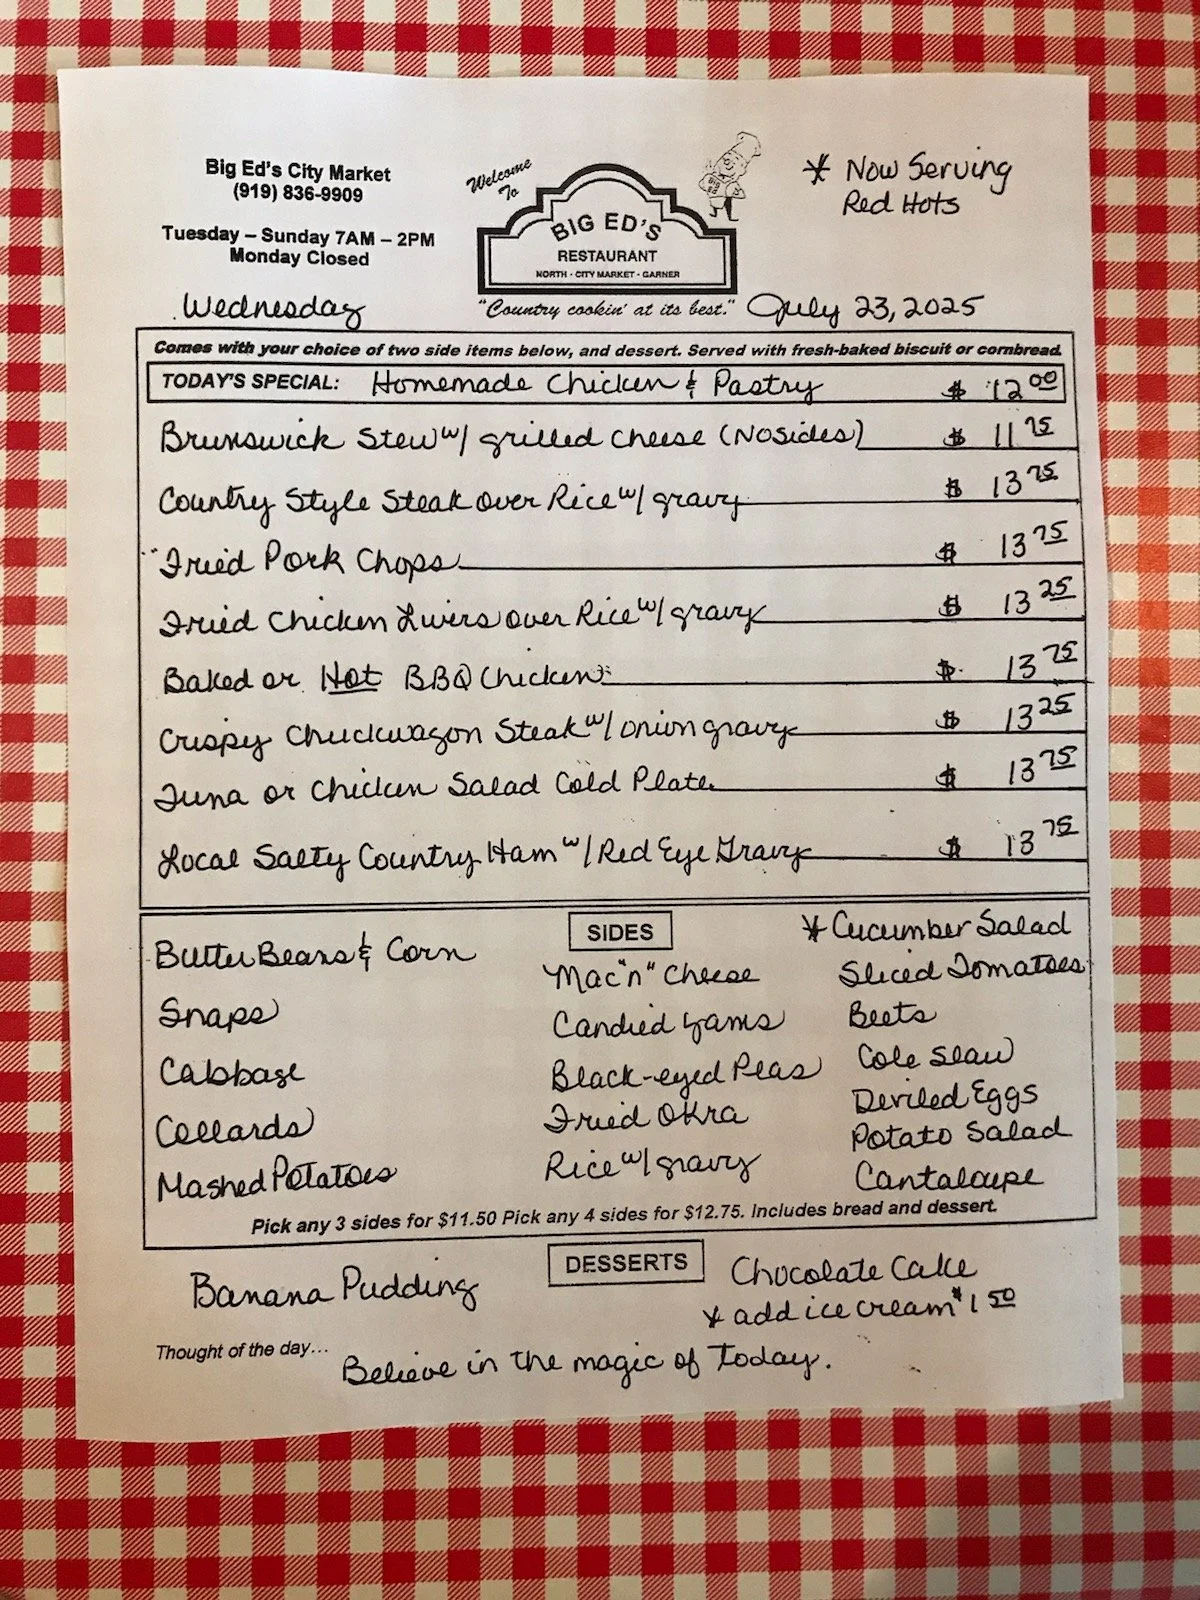 Big Ed's City Market
(919) 836-9909
Tuesday – Sunday 7AM – 2PM
Monday Closed
Welcome
To
BIG ED'S
RESTAURANT
NORTH · CITY MARKET · GARNER
"Country cookin' at its best."
* Now Serving
Red Hots
Wednesday
July 23, 2025
Comes with your choice of two side items below, and dessert. Served with fresh-baked biscuit or cornbread.
TODAY'S SPECIAL: Homemade Chicken & Pastry $ 12 00
Brunswick Stew w/ grilled cheese (No sides) $ 11 75
Country Style Steak over Rice w/ gravy $ 13 75
Fried Pork Chops $ 13 75
Fried Chicken Livers over Rice w/ gravy $ 13 25
Baked or Hot BBQ Chicken $ 13 75
Crispy Chuckwagon Steak w/ onion gravy $ 13 25
Tuna or Chicken Salad Cold Plate $ 13 75
Local Salty Country Ham w/ Red Eye Gravy $ 13 75
SIDES
Butter Beans & Corn
Snaps
Cabbage
Collards
Mashed Potatoes
Mac "n" Cheese
Candied yams
Black-eyed Peas
Fried Okra
Rice w/ gravy
* Cucumber Salad
Sliced Tomatoes
Beets
Cole Slaw
Deviled Eggs
Potato Salad
Cantaloupe
Pick any 3 sides for $11.50 Pick any 4 sides for $12.75. Includes bread and dessert.
DESSERTS
Banana Pudding
Chocolate Cake
* add ice cream $1 50
Thought of the day... Believe in the magic of Today.